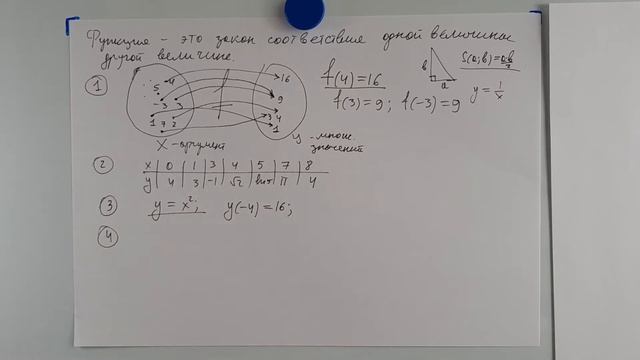 Функция – это закон соответствия одной величины
другой величине.
① 4 5 -3 3 1 7 2
16 9 3 4 1
X - аргумент
у - множ. значений
f(4)=16
f(3)=9; f(-3)=9
в а
S(a;b)=ab/2
y=1/x
② x 0 1 3 4 5 7 8
y 4 3 -1 √2 π 4
③ y = x²; y(-4)=16;
④